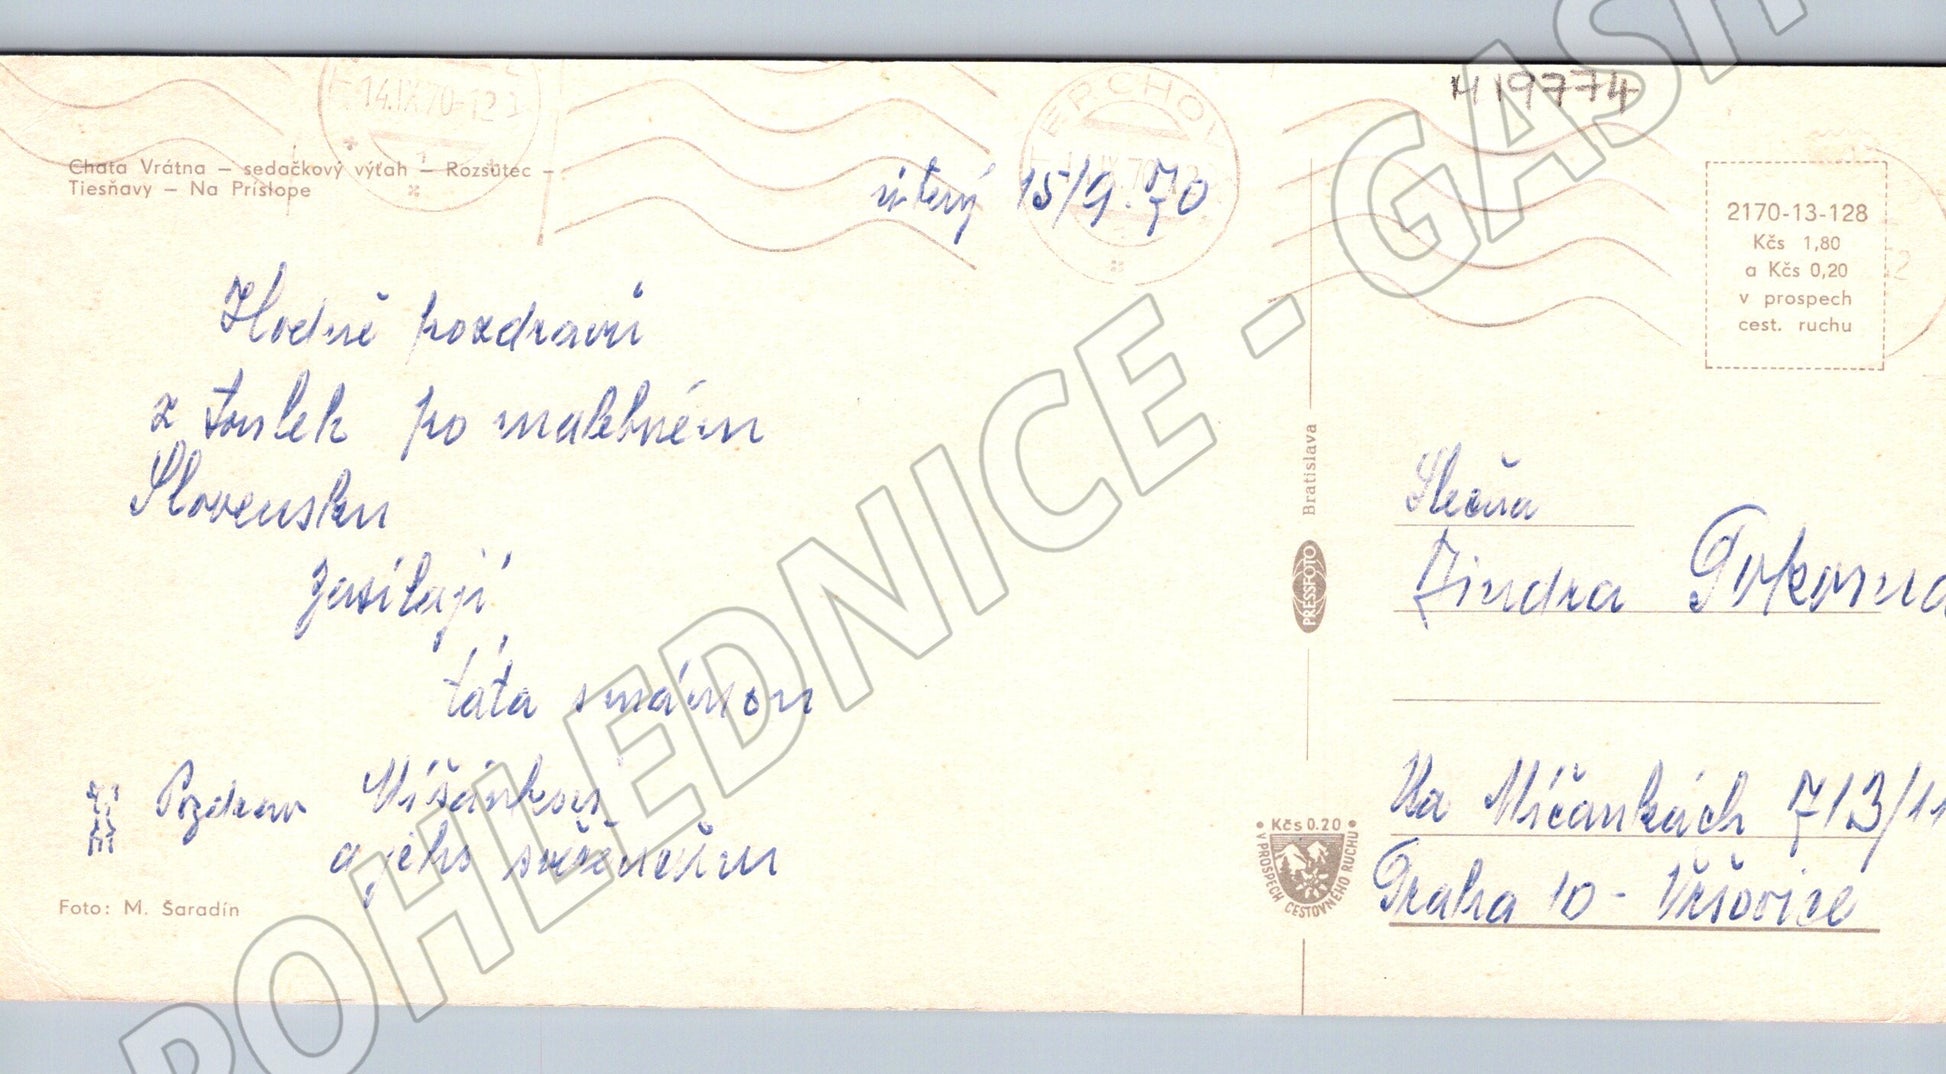 M 19774
14.IX.70-12
ERCHOV
Chata Vrátna – sedačkový výťah – Rozsutec –
Tiesňavy – Na Príslope
úterý 15/9.70
2170-13-128
Kčs 1,80
a Kčs 0,20
v prospech
cest. ruchu
Hodně pozdravů
z toulek po malebném
Slovensku
zasílají
táta s mámou
Pozdrav Míšánkovi
a jeho
Foto: M. Šaradín
Bratislava
PRESSFOTO
Kčs 0.20
V PROSPECH CESTOVNÉHO RUCHU
Slečna
Jindra Pokorná
Na Míčánkách 713/11
Praha 10 - Vršovice
POHLEDNICE - GASI